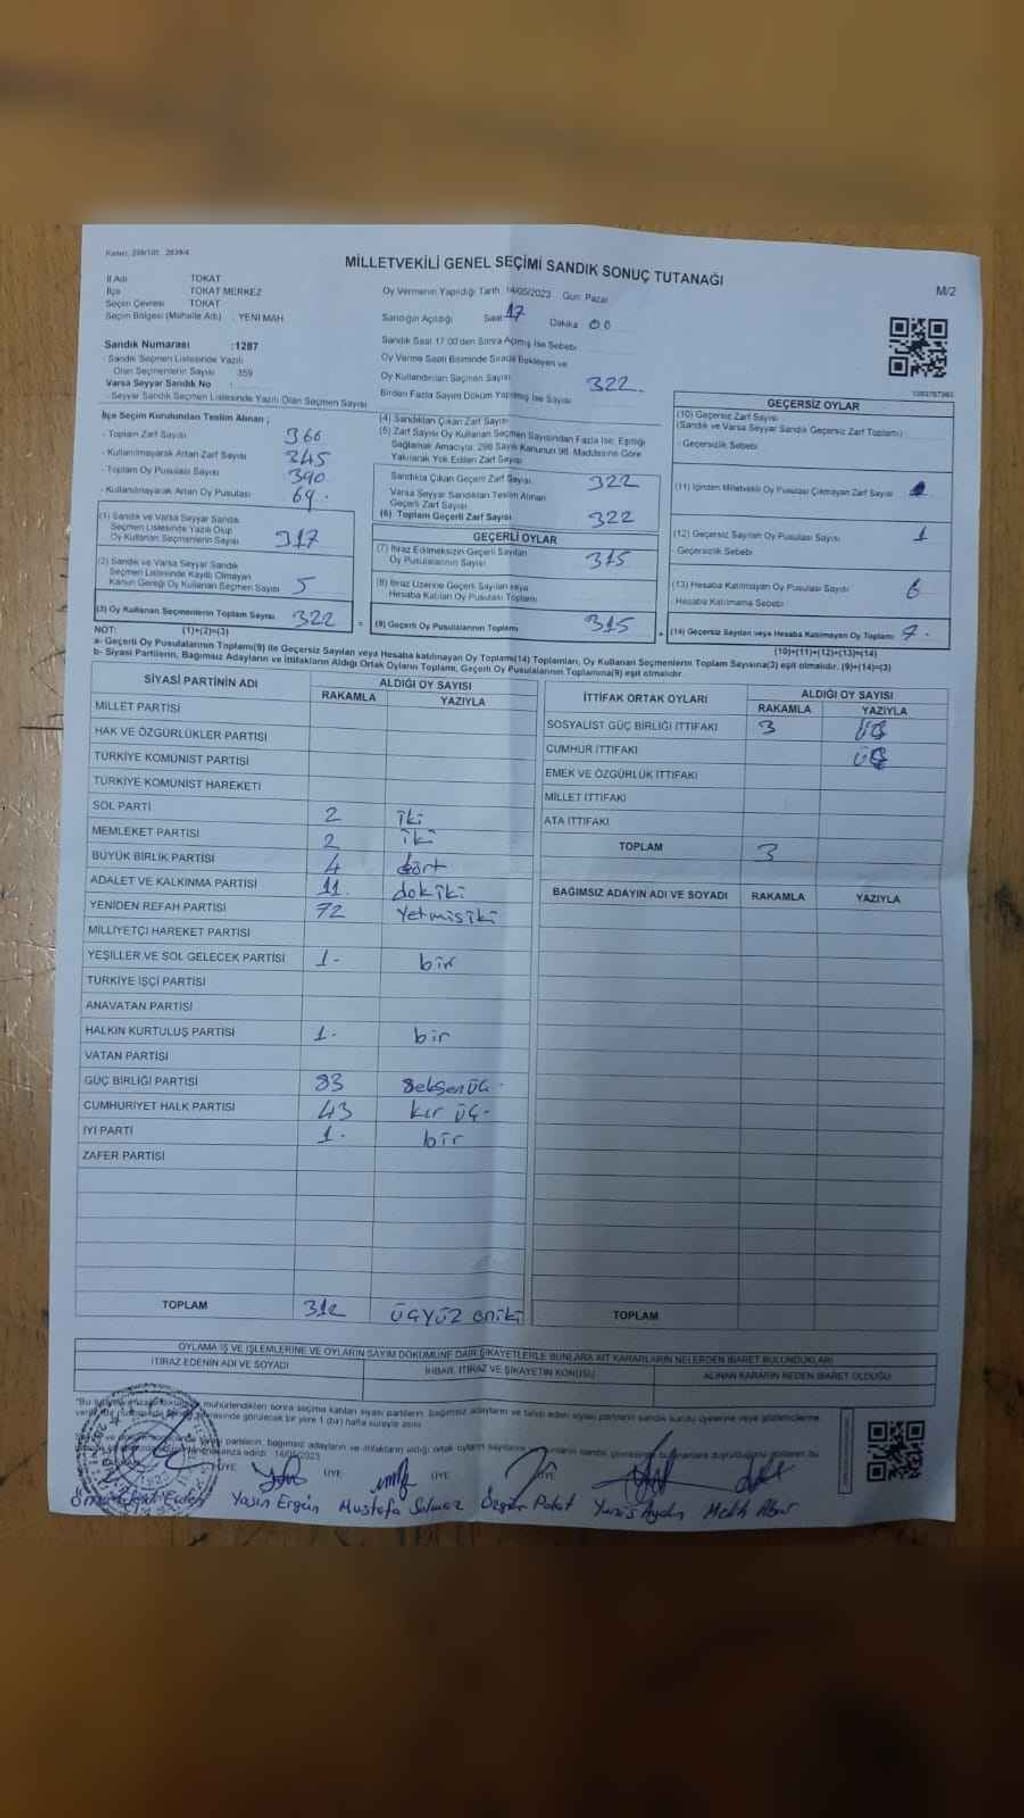 MİLLETVEKİLİ GENEL SEÇİMİ SANDIK SONUÇ TUTANAĞI
M/2
İl Adı TOKAT
İlçe TOKAT MERKEZ
Seçim Çevresi TOKAT
Seçim Bölgesi (Mahalle Adı) YENİ MAH
Oy Vermenin Yapıldığı Tarih 14/05/2023 Gün Pazar
Sandığın Açıldığı Saat 17 Dakika 00
Sandık Saat 17.00'den Sonra Açmış İse Sebebi
Oy Verme Saati Bitiminde Sırada Bekleyen ve
Oy Kullandırılan Seçmen Sayısı
Birden Fazla Sayım Döküm Yapılmış İse Sayısı
Sandık Numarası :1287
Sandık Seçmen Listesinde Yazılı
Olan Seçmenlerin Sayısı 359
Varsa Seyyar Sandık No :
Seyyar Sandık Seçmen Listesinde Yazılı Olan Seçmen Sayısı
İlçe Seçim Kurulundan Teslim Alınan ;
- Toplam Zarf Sayısı 366
- Kullanılmayarak Artan Zarf Sayısı 245
- Toplam Oy Pusulası Sayısı 390
- Kullanılmayarak Artan Oy Pusulası 69.
(1) Sandık ve Varsa Seyyar Sandık
Seçmen Listesinde Yazılı Olup
Oy Kullanan Seçmenlerin Sayısı 317
(2) Sandık ve Varsa Seyyar Sandık
Seçmen Listesinde Kayıtlı Olmayan
Kanun Gereği Oy Kullanan Seçmen Sayısı 5
(3) Oy Kullanan Seçmenlerin Toplam Sayısı 322
(1)+(2)=(3)
(4) Sandıktan Çıkan Zarf Sayısı 322
(5) Zarf Sayısı Oy Kullanan Seçmen Sayısından Fazla İse; Eşitliği
Sağlamak Amacıyla; 298 Sayılı Kanunun 98. Maddesine Göre
Yakılarak Yok Edilen Zarf Sayısı
Sandıkta Çıkan Geçerli Zarf Sayısı 322
Varsa Seyyar Sandıktan Teslim Alınan
Geçerli Zarf Sayısı
(6) Toplam Geçerli Zarf Sayısı 322
GEÇERLİ OYLAR
(7) İtiraz Edilmeksizin Geçerli Sayılan
Oy Pusulalarının Sayısı 315
(8) İtiraz Üzerine Geçerli Sayılan veya
Hesaba Katılan Oy Pusulası Toplamı
(9) Geçerli Oy Pusulalarının Toplamı 315
GEÇERSİZ OYLAR
(10) Geçersiz Zarf Sayısı
(Sandık ve Varsa Seyyar Sandık Geçersiz Zarf Toplamı)
- Geçersizlik Sebebi
(11) İçinden Milletvekili Oy Pusulası Çıkmayan Zarf Sayısı
(12) Geçersiz Sayılan Oy Pusulası Sayısı 1
- Geçersizlik Sebebi
(13) Hesaba Katılmayan Oy Pusulası Sayısı 6
Hesaba Katılmama Sebebi
(14) Geçersiz Sayılan veya Hesaba Katılmayan Oy Toplamı 7.
(10)+(11)+(12)+(13)=(14)
NOT:
a- Geçerli Oy Pusulalarının Toplamı(9) ile Geçersiz Sayılan veya Hesaba katılmayan Oy Toplamı(14) Toplamları, Oy Kullanan Seçmenlerin Toplam Sayısına(3) eşit olmalıdır. (9)+(14)=(3)
b- Siyasi Partilerin, Bağımsız Adayların ve İttifakların Aldığı Ortak Oyların Toplamı, Geçerli Oy Pusulalarının Toplamına(9) eşit olmalıdır.
SİYASİ PARTİNİN ADI ALDIĞI OY SAYISI
RAKAMLA YAZIYLA
MİLLET PARTİSİ
HAK VE ÖZGÜRLÜKLER PARTİSİ
TÜRKİYE KOMÜNİST PARTİSİ
TÜRKİYE KOMÜNİST HAREKETİ
SOL PARTİ 2 iki
MEMLEKET PARTİSİ 2 iki
BÜYÜK BİRLİK PARTİSİ 4 dört
ADALET VE KALKINMA PARTİSİ
YENİDEN REFAH PARTİSİ 72 Yetmişiki
MİLLİYETÇİ HAREKET PARTİSİ
YEŞİLLER VE SOL GELECEK PARTİSİ 1- bir
TÜRKİYE İŞÇİ PARTİSİ
ANAVATAN PARTİSİ
HALKIN KURTULUŞ PARTİSİ 1- bir
VATAN PARTİSİ
GÜÇ BİRLİĞİ PARTİSİ 83 Seksenüç
CUMHURİYET HALK PARTİSİ 43 kır üç-
İYİ PARTİ 1- bir
ZAFER PARTİSİ
TOPLAM 312 üçyüz oniki
İTTİFAK ORTAK OYLARI ALDIĞI OY SAYISI
RAKAMLA YAZIYLA
SOSYALİST GÜÇ BİRLİĞİ İTTİFAKI 3
CUMHUR İTTİFAKI üç
EMEK VE ÖZGÜRLÜK İTTİFAKI
MİLLET İTTİFAKI
ATA İTTİFAKI
TOPLAM 3
BAĞIMSIZ ADAYIN ADI VE SOYADI RAKAMLA YAZIYLA
TOPLAM
OYLAMA İŞ VE İŞLEMLERİNE VE OYLARIN SAYIM DÖKÜMÜNE DAİR ŞİKAYETLERLE BUNLARA AİT KARARLARIN NELERDEN İBARET BULUNDUKLARI
İTİRAZ EDENİN ADI VE SOYADI
İHBAR, İTİRAZ VE ŞİKAYETİN KONUSU
ALINAN KARARIN NEDEN İBARET OLDUĞU
ÜYE ÜYE ÜYE
Yasin Ergün Mustafa Özgür Polat Yunis Aydın